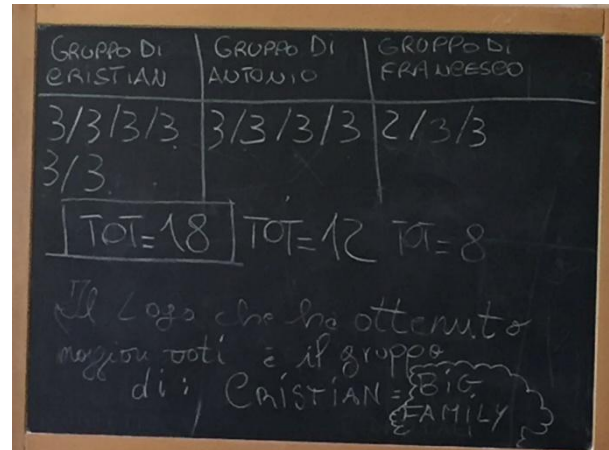 GRUPPO DI CRISTIAN
GRUPPO DI ANTONIO
GROPPO DI FRANCESCO
3/3/3/3
3/3
3/3/3/3
2/3/3
TOT=18
TOT=12
TOT=8
Il Logo che ha ottenuto
maggiori voti è il gruppo
di: CRISTIAN = BIG
FAMILY